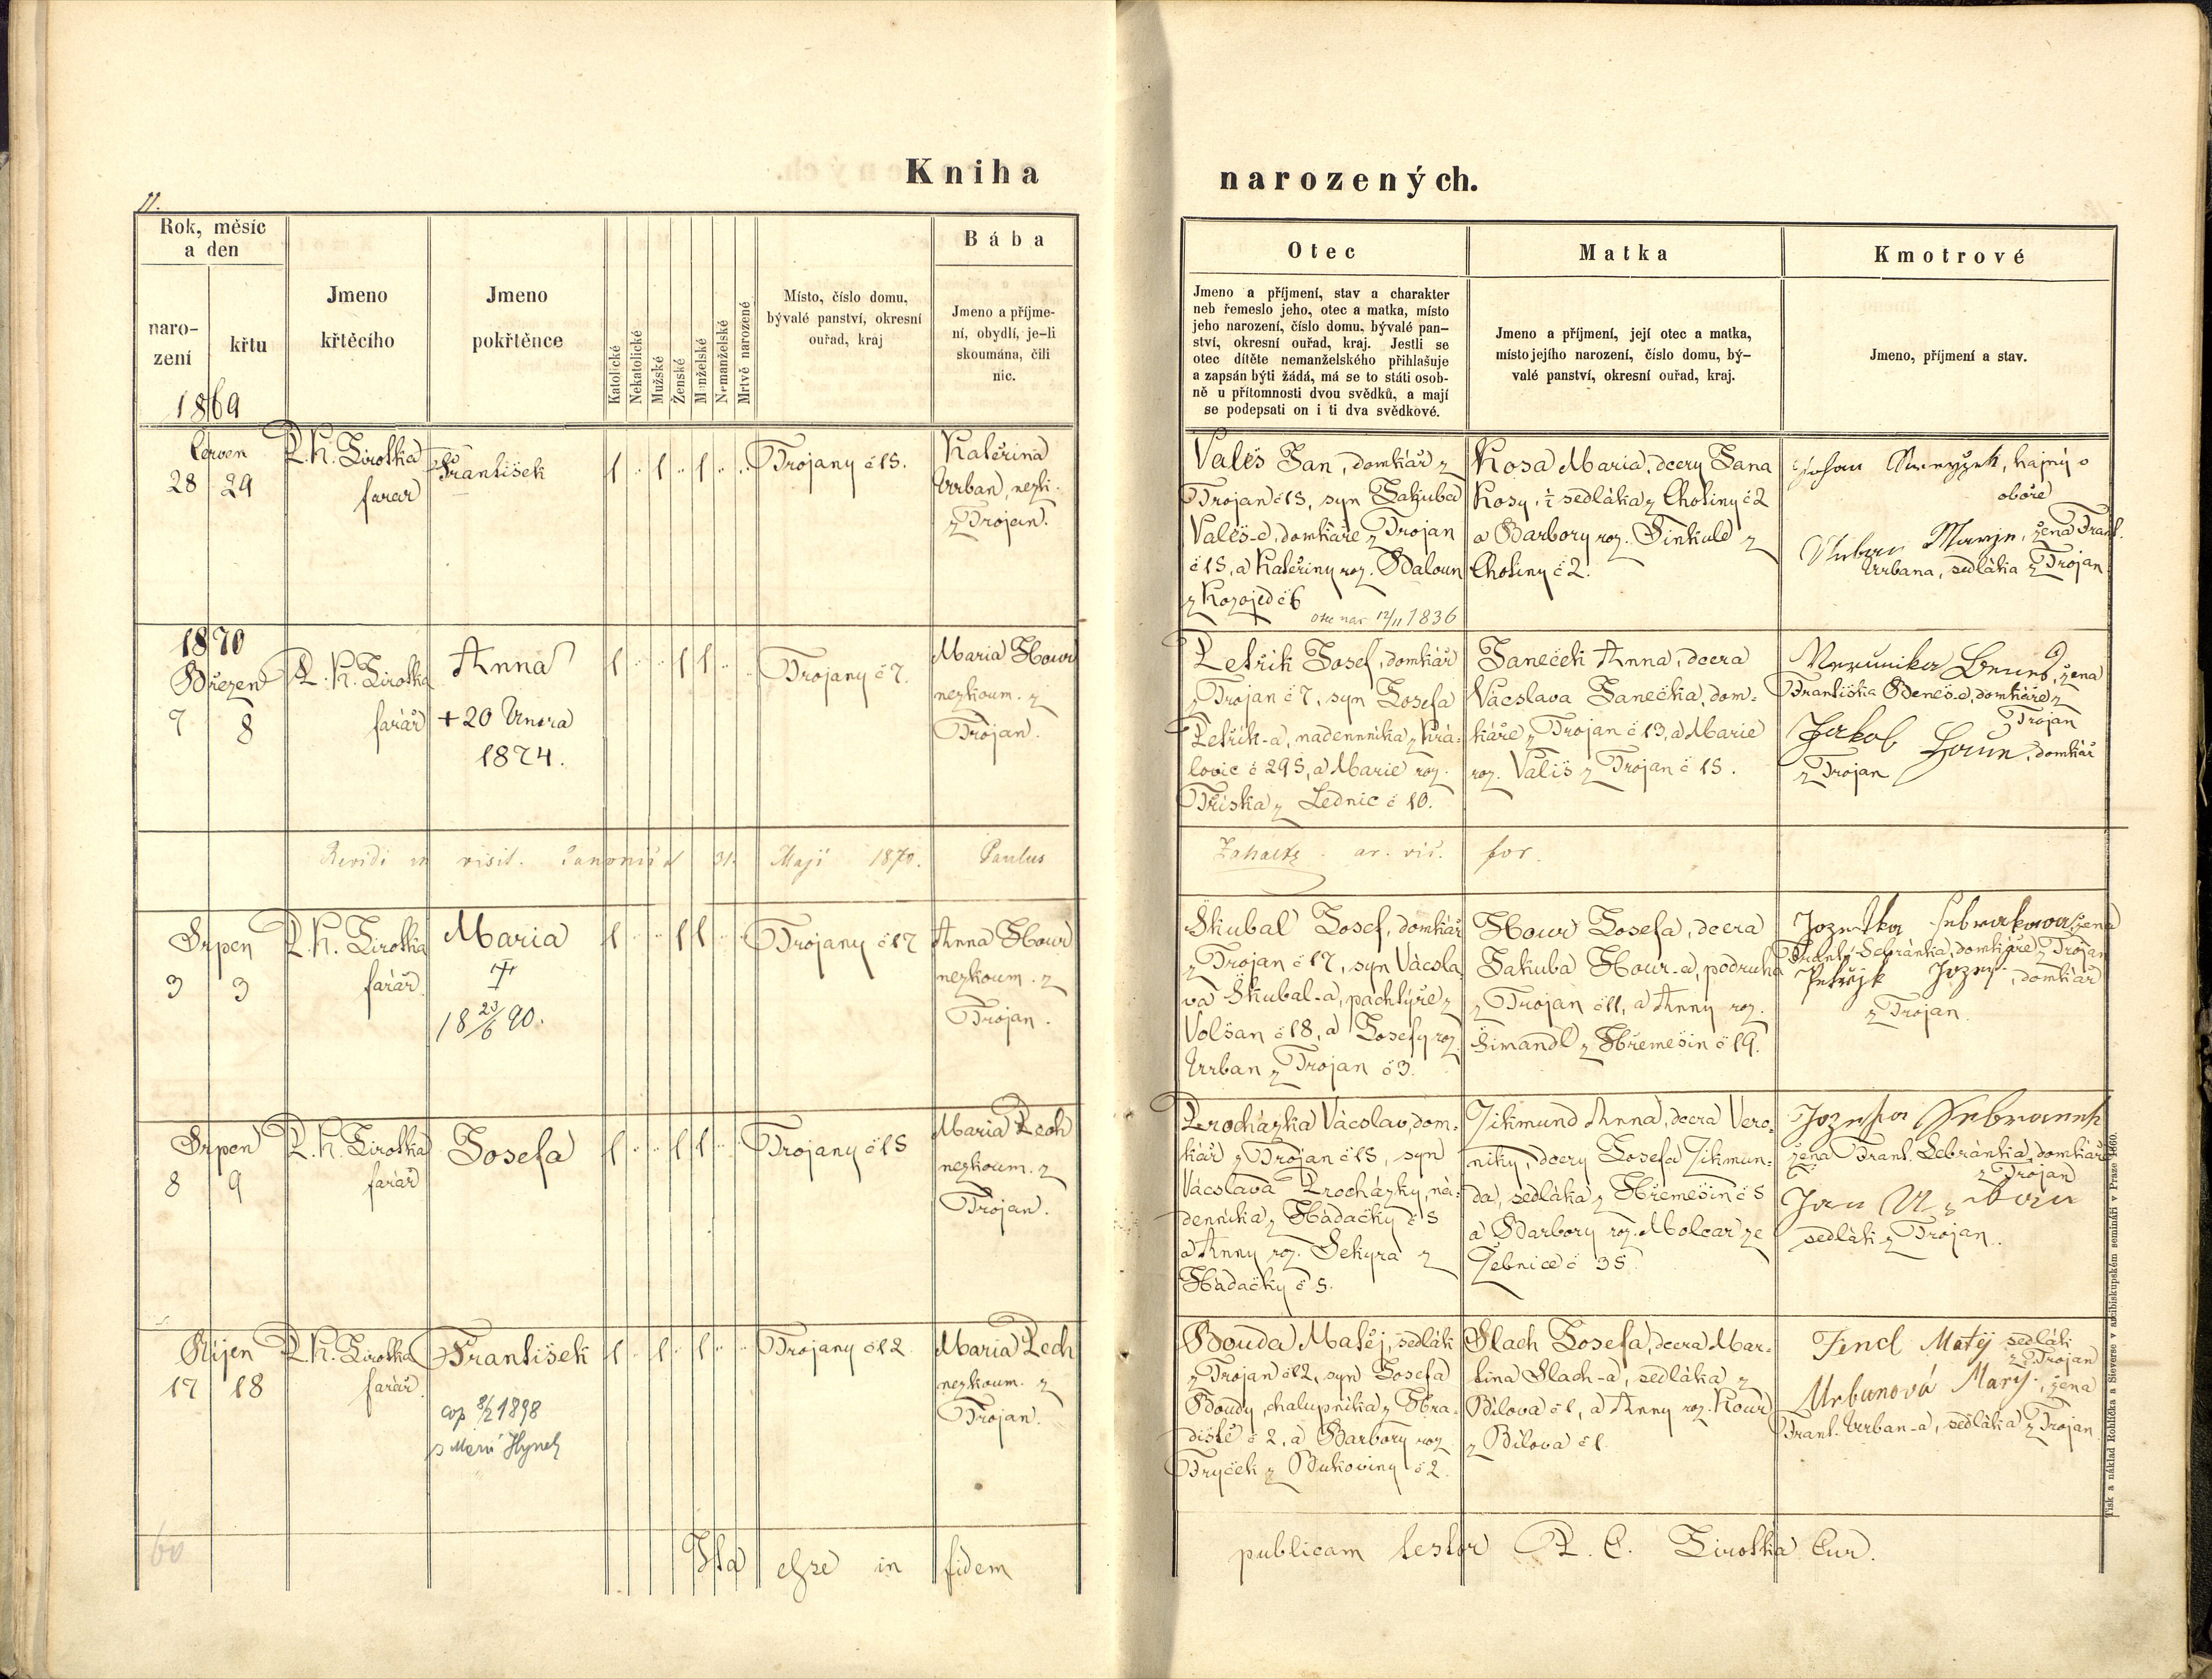 Kniha narozených.
11.
Rok, měsíc
a den
naro-
zení
křtu
1869
Jmeno
křtěcího
Jmeno
pokřtěnce
Katolické
Nekatolické
Mužské
Ženské
Manželské
Nemanželské
Mrtvě narozené
Místo, číslo domu,
bývalé panství, okresní
ouřad, kraj
Bába
Jmeno a příjme-
ní, obydlí, je-li
skoumána, čili
nic.
Otec
Jmeno a příjmení, stav a charakter
neb řemeslo jeho, otec a matka, místo
jeho narození, číslo domu, bývalé pan-
ství, okresní ouřad, kraj. Jestli se
otec dítěte nemanželského přihlašuje
a zapsán býti žádá, má se to státi osob-
ně u přítomnosti dvou svědků, a mají
se podepsati on i ti dva svědkové.
Matka
Jmeno a příjmení, její otec a matka,
místo jejího narození, číslo domu, bý-
valé panství, okresní ouřad, kraj.
Kmotrové
Jmeno, příjmení a stav.
Červen
28 29
P. K. Žirotka
farář
František
1 1 1
Trojany č 15.
Kateřina
Urban, nezk.
z Trojan.
Vališ Jan, domkář z
Trojan č 15, syn Jakuba
Vališ-a, domkáře z Trojan
č 15, a Kateřiny roz. Baloun
z Kozojed č 6
otec nar 12/11 1836
Kosa Maria, dcery Jana
Kosy, ½ sedláka z Chotiny č 2
a Barbory roz. Šinkule z
Chotiny č 2.
Johan, hajný v
oboře
Urban Marye, žena Frant.
Urbana, sedláka z Trojan
1870
Březen
7 8
P. K. Žirotka
farář
Anna
+ 20 Února
1874.
1 1 1
Trojany č 7.
Maria Hour
nezkoum. z
Trojan.
Petřík Josef, domkář
z Trojan č 7, syn Josefa
Petřík-a, nádenníka z Krá-
lovic č 295, a Marie roz.
Tříska z Lednic č 10.
Janeček Anna, dcera
Vácslava Janečka, dom-
káře z Trojan č 13, a Marie
roz. Vališ z Trojan č 15.
Verunika Beneš, žena
Františka Beneš-a, domkáře z
Trojan
Jakob Hour, domkář
z Trojan
Revidi in visit. canonica 31. Maji 1870. Paulus
ar. vic. for.
Srpen
3 3
P. K. Žirotka
farář
Maria
†
18 23/6 90.
1 1 1
Trojany č 17
Anna Hour
nezkoum. z
Trojan.
Škubal Josef, domkář
z Trojan č 17, syn Vácsla-
va Škubal-a, pachtýře z
Volšan č 18, a Josefy roz.
Urban z Trojan č 3.
Hour Josefa, dcera
Jakuba Hour-a, podruha
z Trojan č 11, a Anny roz.
Šimandl z Hřemešín č 19.
žena
Frant. Sebránka, domkáře z Trojan
Petřjk Jozef, domkář
z Trojan.
Srpen
8 9
P. K. Žirotka
farář
Josefa
1 1 1
Trojany č 15
Maria Pech
nezkoum. z
Trojan.
Procházka Vácslav, dom-
kář z Trojan č 15, syn
Vácslava Procházky, ná-
denníka z Hadačky č 5
a Anny roz. Sekyra z
Hadačky č 5.
Zikmund Anna, dcera Vero-
niky, dcery Josefa Zikmun-
da, sedláka z Hřemešín č 5
a Barbory roz. Molcar ze
Žebnice č 35.
Jozefa Sebranek
žena Frant. Sebránka, domkáře
z Trojan
Jan
sedlák z Trojan.
Říjen
17 18
P. K. Žirotka
farář.
František
cop 8/2 1898
s Marií Hynek
1 1 1
Trojany č 12
Maria Pech
nezkoum. z
Trojan.
Bouda Matěj, sedlák
z Trojan č 12, syn Josefa
Boudy, chalupníka z Hra-
diště č 2, a Barbory roz.
Fryček z Bukoviny č 2.
Slach Josefa, dcera Mar-
tina Slach-a, sedláka z
Bílova č 1, a Anny roz. Kour
z Bílova č 1.
Fencl Matěj sedlák
z Trojan
Urbanová Mary, žena
Frant. Urban-a, sedláka z Trojan.
60
Ita esse in fidem publicam testor P. C. Žirotka Cur.
Tisk a náklad Rohlíčka a Sieverse v arcibiskupském semináři v Praze 1860.